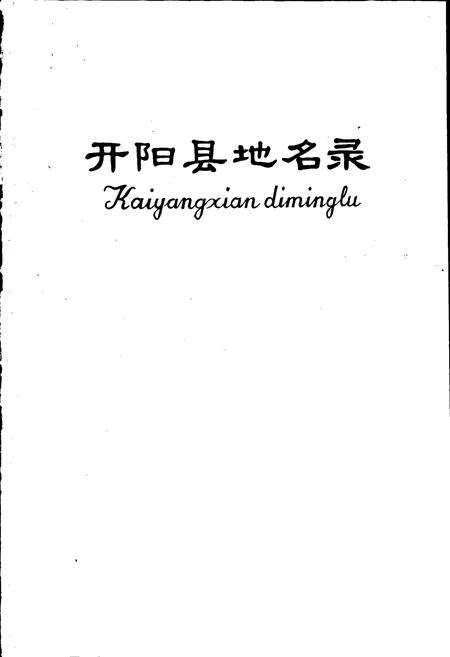 开阳县地名录
Kaiyangxian diminglu